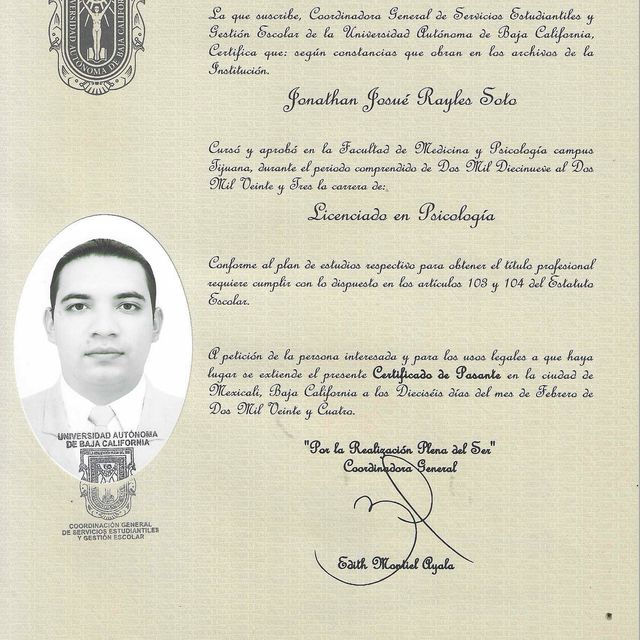 UNIVERSIDAD AUTÓNOMA DE BAJA CALIFORNIA
La que suscribe, Coordinadora General de Servicios Estudiantiles y
Gestión Escolar de la Universidad Autónoma de Baja California,
Certifica que: según constancias que obran en los archivos de la
Institución.
Jonathan Josué Rayles Soto
Cursó y aprobó en la Facultad de Medicina y Psicología campus
Tijuana, durante el periodo comprendido de Dos Mil Diecinueve al Dos
Mil Veinte y Tres la carrera de:
Licenciado en Psicología
Conforme al plan de estudios respectivo para obtener el título profesional
requiere cumplir con lo dispuesto en los artículos 103 y 104 del Estatuto
Escolar.
A petición de la persona interesada y para los usos legales a que haya
lugar se extiende el presente Certificado de Pasante en la ciudad de
Mexicali, Baja California a los Dieciséis días del mes de Febrero de
Dos Mil Veinte y Cuatro.
"Por la Realización Plena del Ser"
Coordinadora General
Edith Montiel Ayala
UNIVERSIDAD AUTÓNOMA
DE BAJA CALIFORNIA
COORDINACIÓN GENERAL
DE SERVICIOS ESTUDIANTILES
Y GESTIÓN ESCOLAR